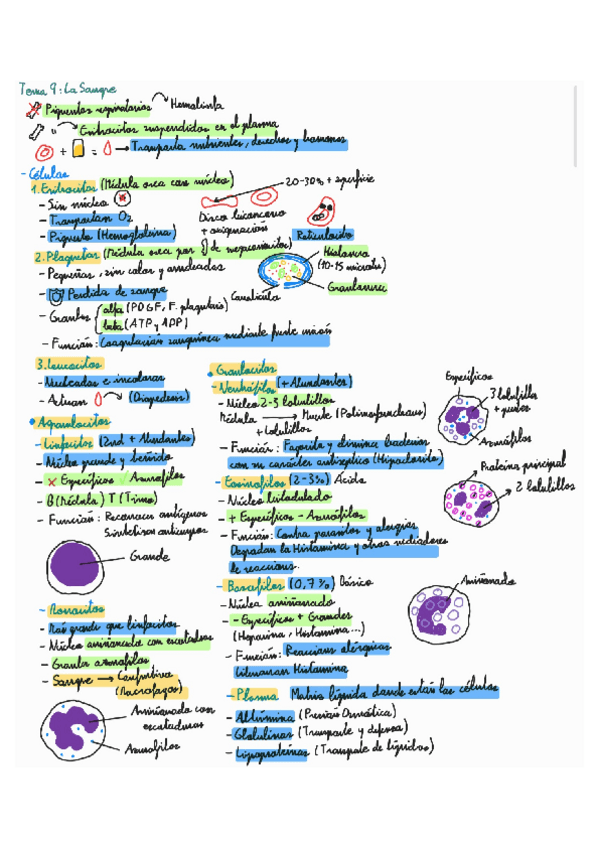 Tema 9: La Sangre
Pigmentos respiratorios → Hemolinfa
Eritrocitos suspendidos en el plasma
+ = → Transporta nutrientes, desechos y hormonas
- Células
1. Eritrocitos (Médula ósea con núcleo)
20-30% + superficie
- Sin núcleo
- Transportan O2
- Pigmento (Hemoglobina)
Disco bicóncavo
+ oxigenación
Reticulocito
2. Plaquetas (Médula ósea por de megacariocitos)
- Pequeñas, sin color y redondeadas
Hialómero
(10-15 microts)
Granulómero
Canalículo
- Pérdida de sangre
- Gránulos alfa (PDGF, F. plaquetario)
beta (ATP y ADP)
- Función: Coagulación sanguínea mediante fuerte unión
3. Leucocitos
- Nucleados e incoloros
- Actúan (Diapédesis)
• Agranulocitos
- Linfocitos (2nd + Abundantes)
- Núcleo grande y teñido
- × Específicos ✓ Azurófilos
- B (Médula) T (Timo)
- Función: Reconocen antígenos
Sintetizan anticuerpos
Grande
- Monocitos
- Más grande que linfocitos
- Núcleo arriñonado con escotaduras
- Gránulos azurófilos
- Sangre → Conjuntivo
(Macrófagos)
Arriñonado con
escotaduras
Azurófilos
• Granulocitos
- Neutrófilos (+ Abundantes)
- Núcleo 2-5 lobulillos
Médula → Muerte (Polimorfonucleares)
+ Lobulillos
- Función: Fagocita y elimina bacterias
con su carácter antiséptico (Hipoclorito)
Específicos
3 lobulillos
+ puentes
Azurófilos
- Eosinófilos (2-3%) Ácido
- Núcleo bilobulado
- + Específicos - Azurófilos
- Función: Contra parásitos y alergias
Degradan la Histamina y otros mediadores
de reacciones.
Proteína principal
2 lobulillos
- Basófilos (0,7%) Básico
- Núcleo arriñonado
- - Específicos + Grandes
(Heparina, Histamina...)
- Función: Reacciones alérgicas
Liberan Histamina
Arriñonado
- Plasma Matriz líquida donde están las células
- Albúmina (Presión Osmótica)
- Globulinas (Transporte y defensa)
- Lipoproteínas (Transporte de lípidos)